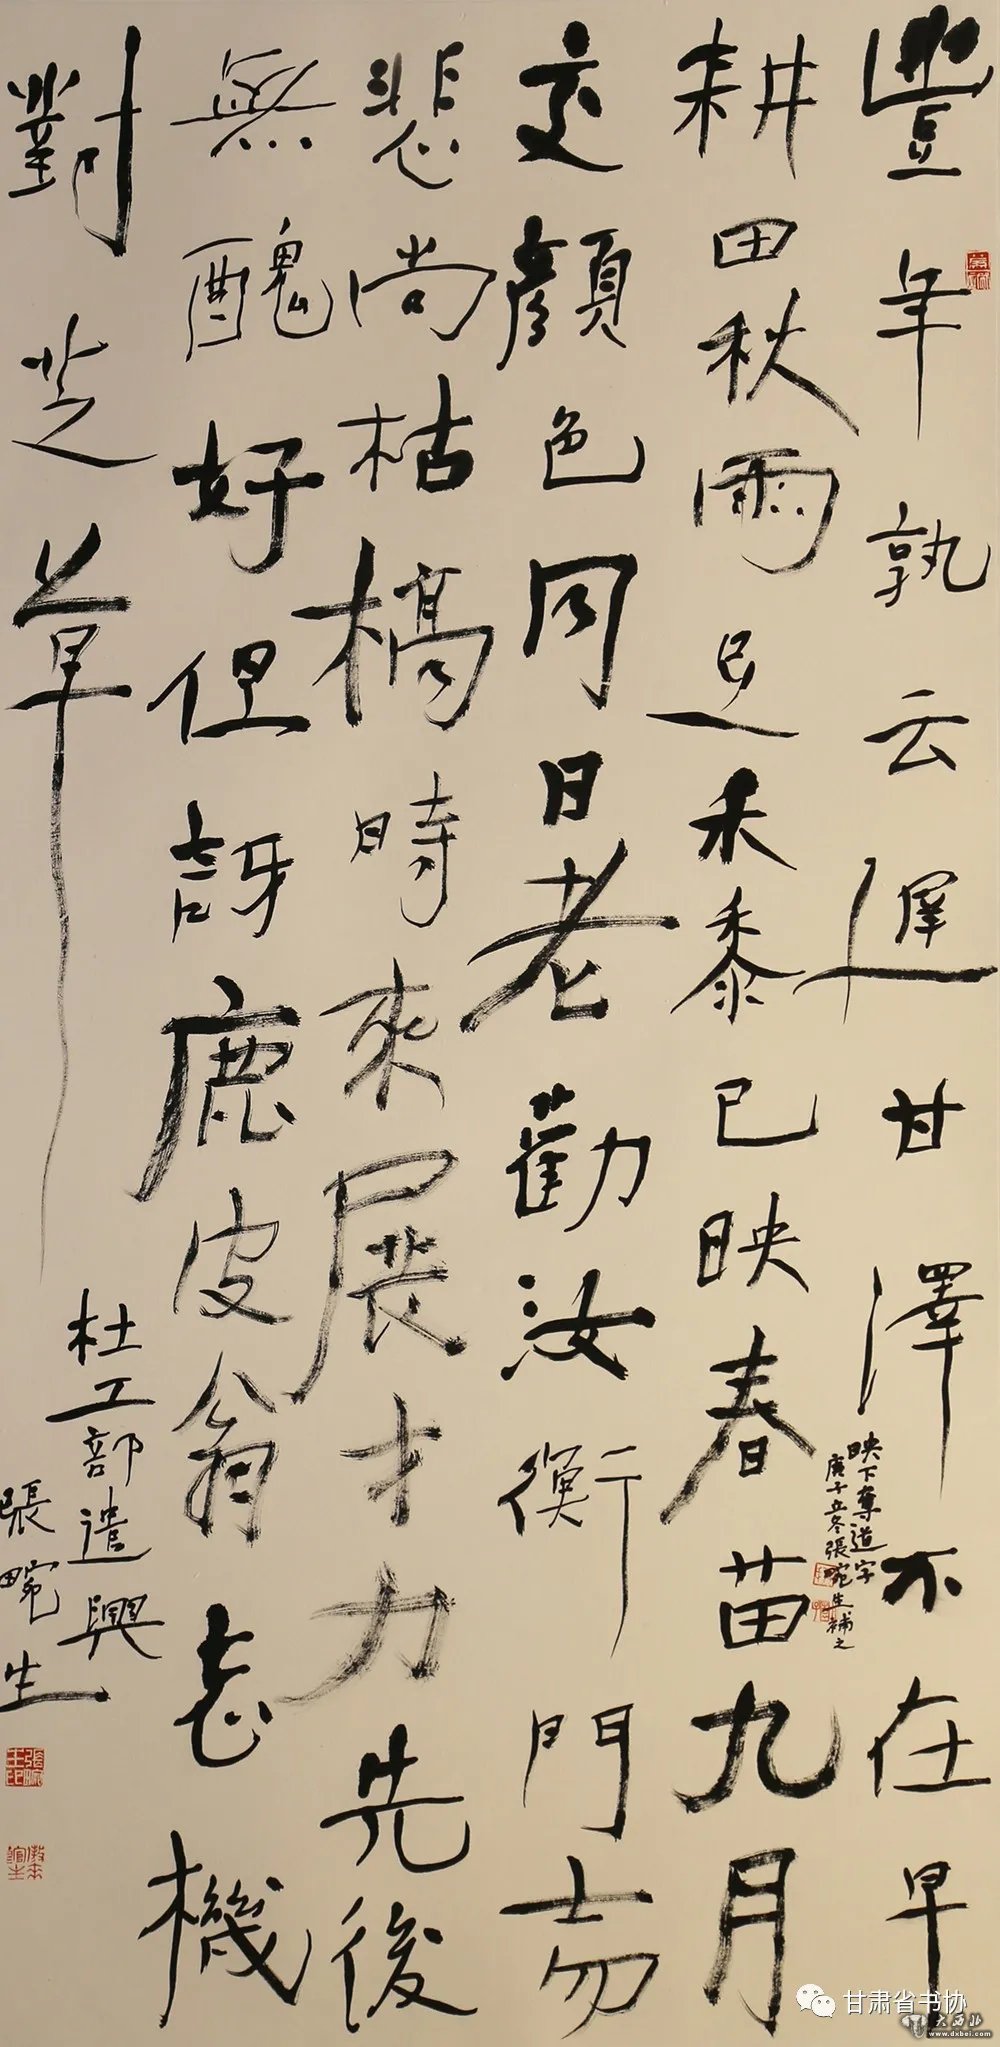 豐年孰云遲甘澤不在早
耕田秋雨足禾黍已映春苗九月
交顏色同日老勸汝衡門士勿
悲尚枯槁時來展才力先後
無醜好但訝鹿皮翁忘機
對芝草
杜工部遣興
張畹生
映下奪道字
庚子立冬張畹生補之
張畹生印
甘肃省书协
大西北
www.dxbei.com